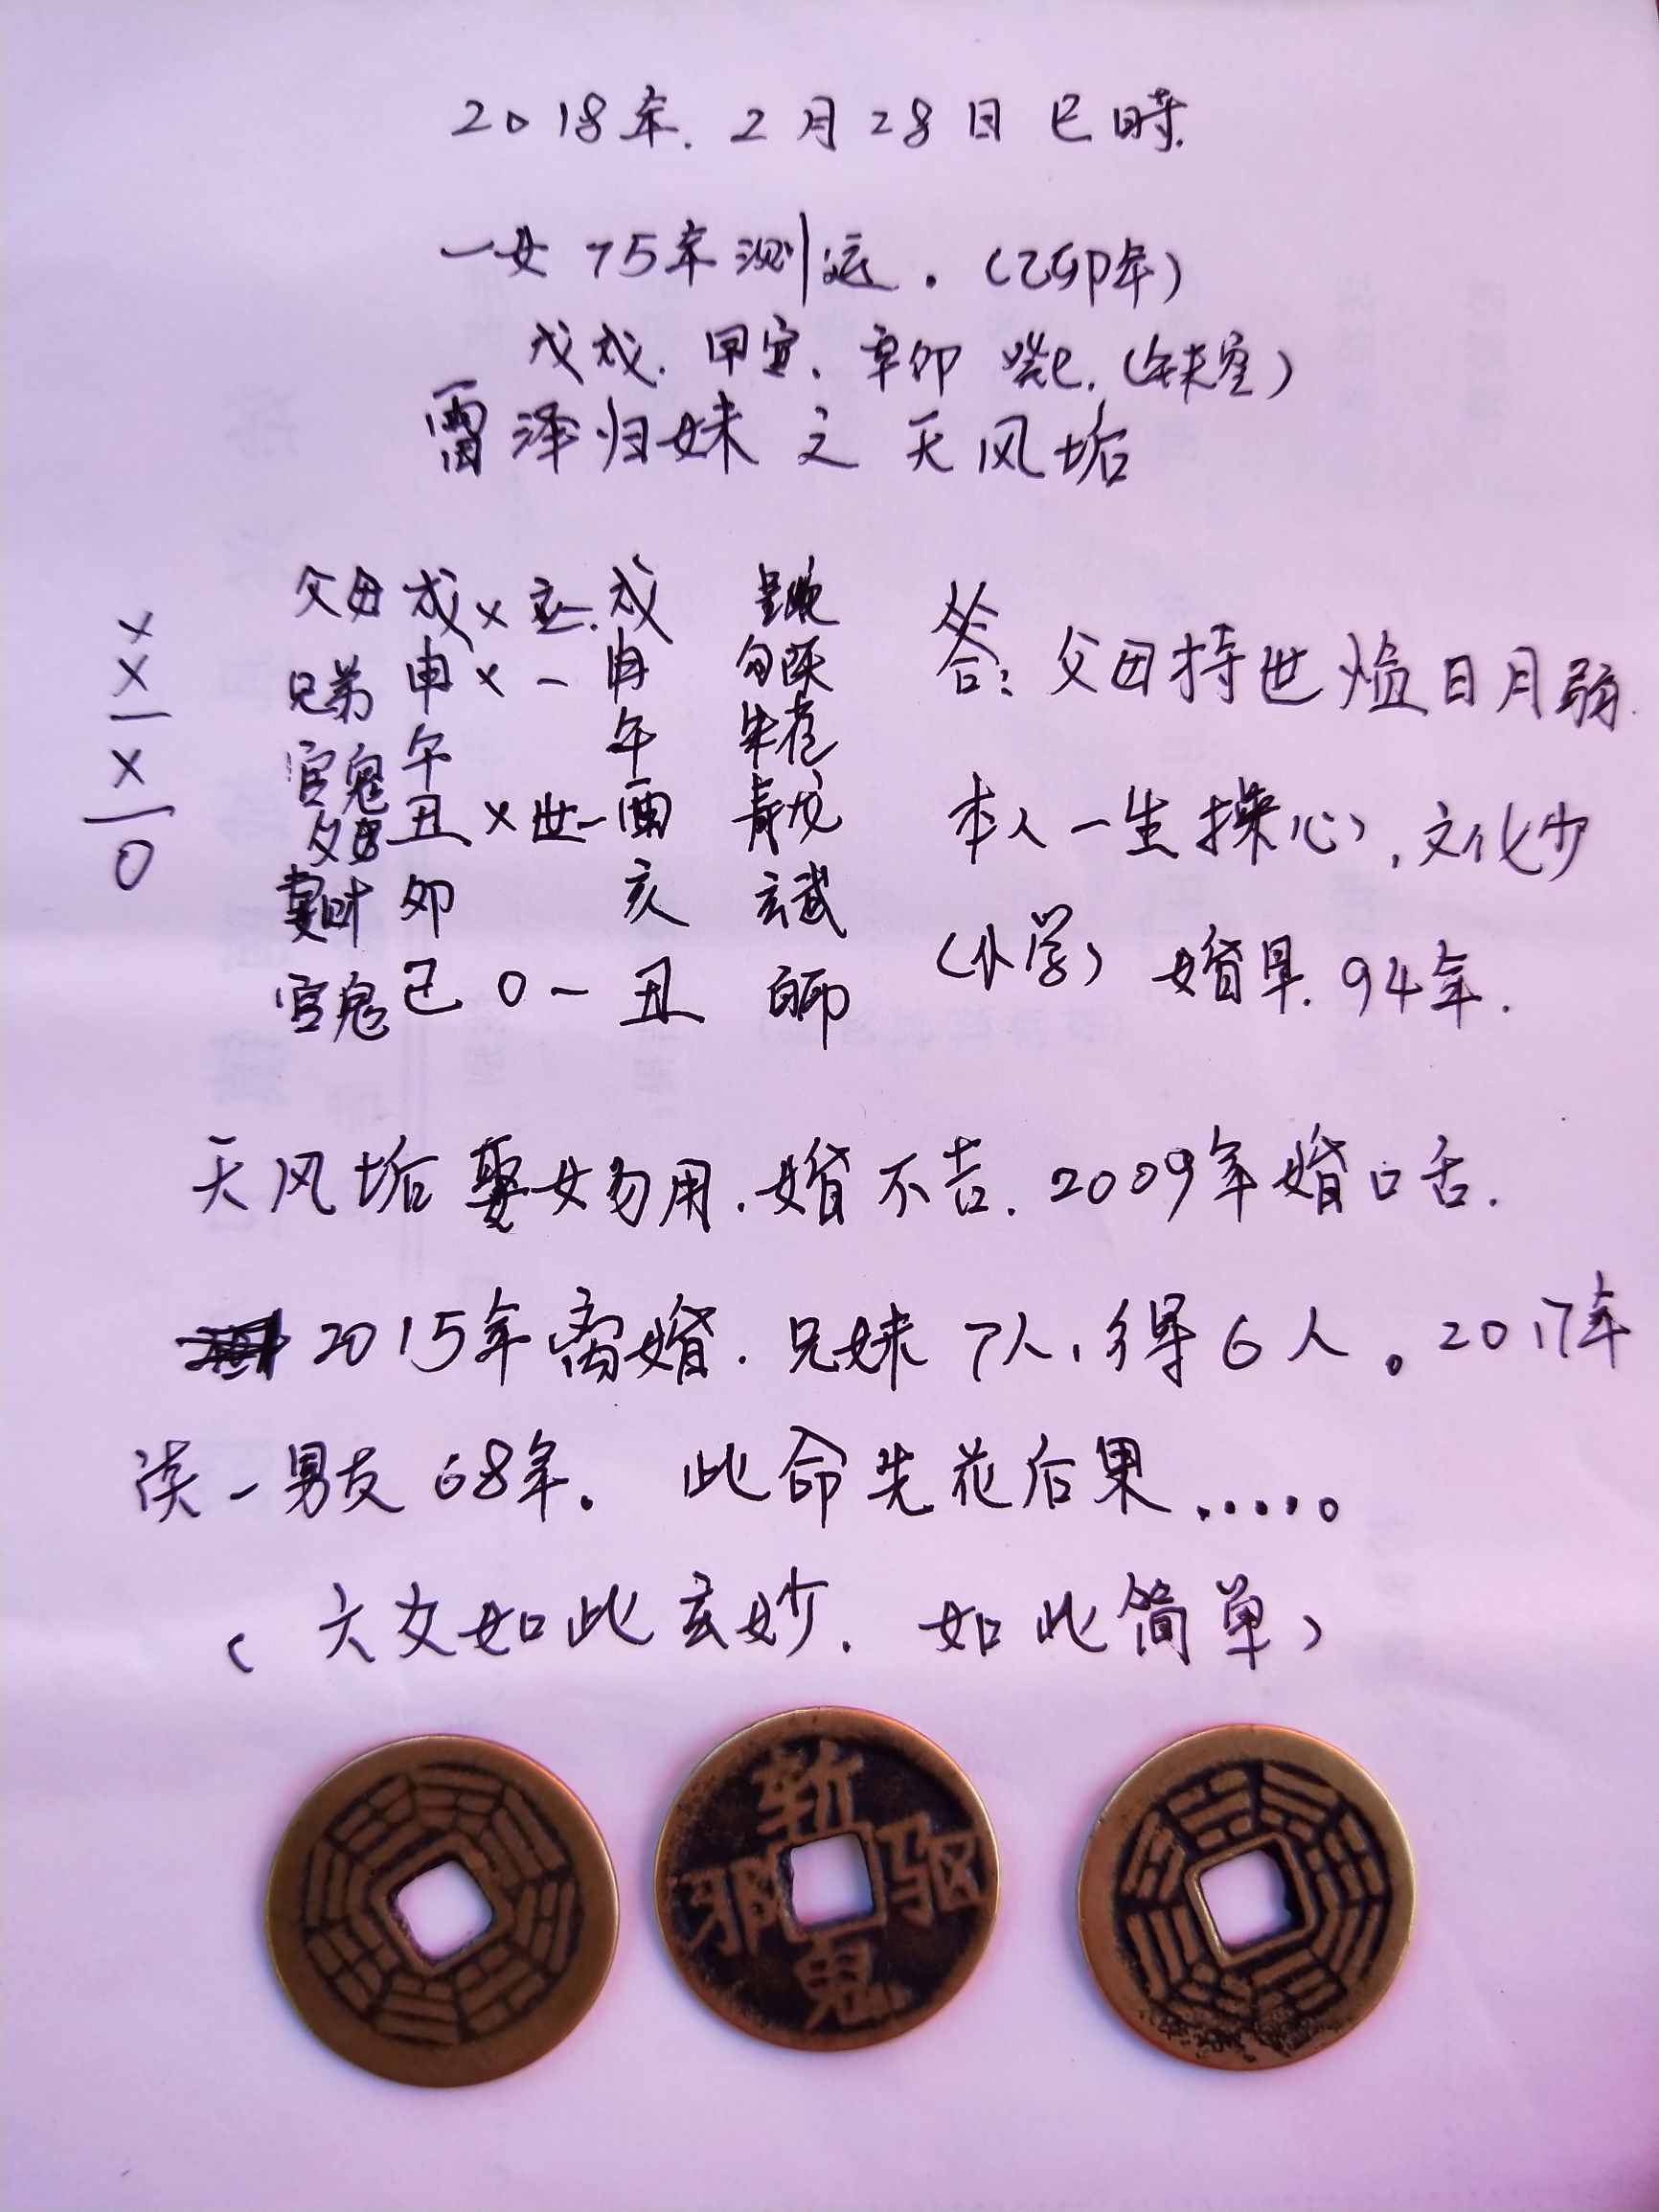 2018年.2月28日巳時.
一女75年测运.(乙卯年)
戊戌.甲寅.辛卯 癸巳.(午未空)
雷泽归妹之天风垢
父母 戌 × 应. 戌
兄弟 申 × 一 申 勾陈
官鬼 午 午 朱雀
父母 丑 × 世一 酉 青龙
妻財 卯 亥 玄武
官鬼 巳 0 一 丑 白虎
×
×
一
×
一
0
答:父母持世临日月弱.
本人一生操心,文化少
(小学) 婚早.94年.
天风垢娶女勿用.婚不吉.2009年婚口舌.
2015年离婚.兄妹7人,得6人。2017年
谈一男友68年。此命先花后果.....。
(六爻如此玄妙.如此简单)
斩
邪 驱
鬼